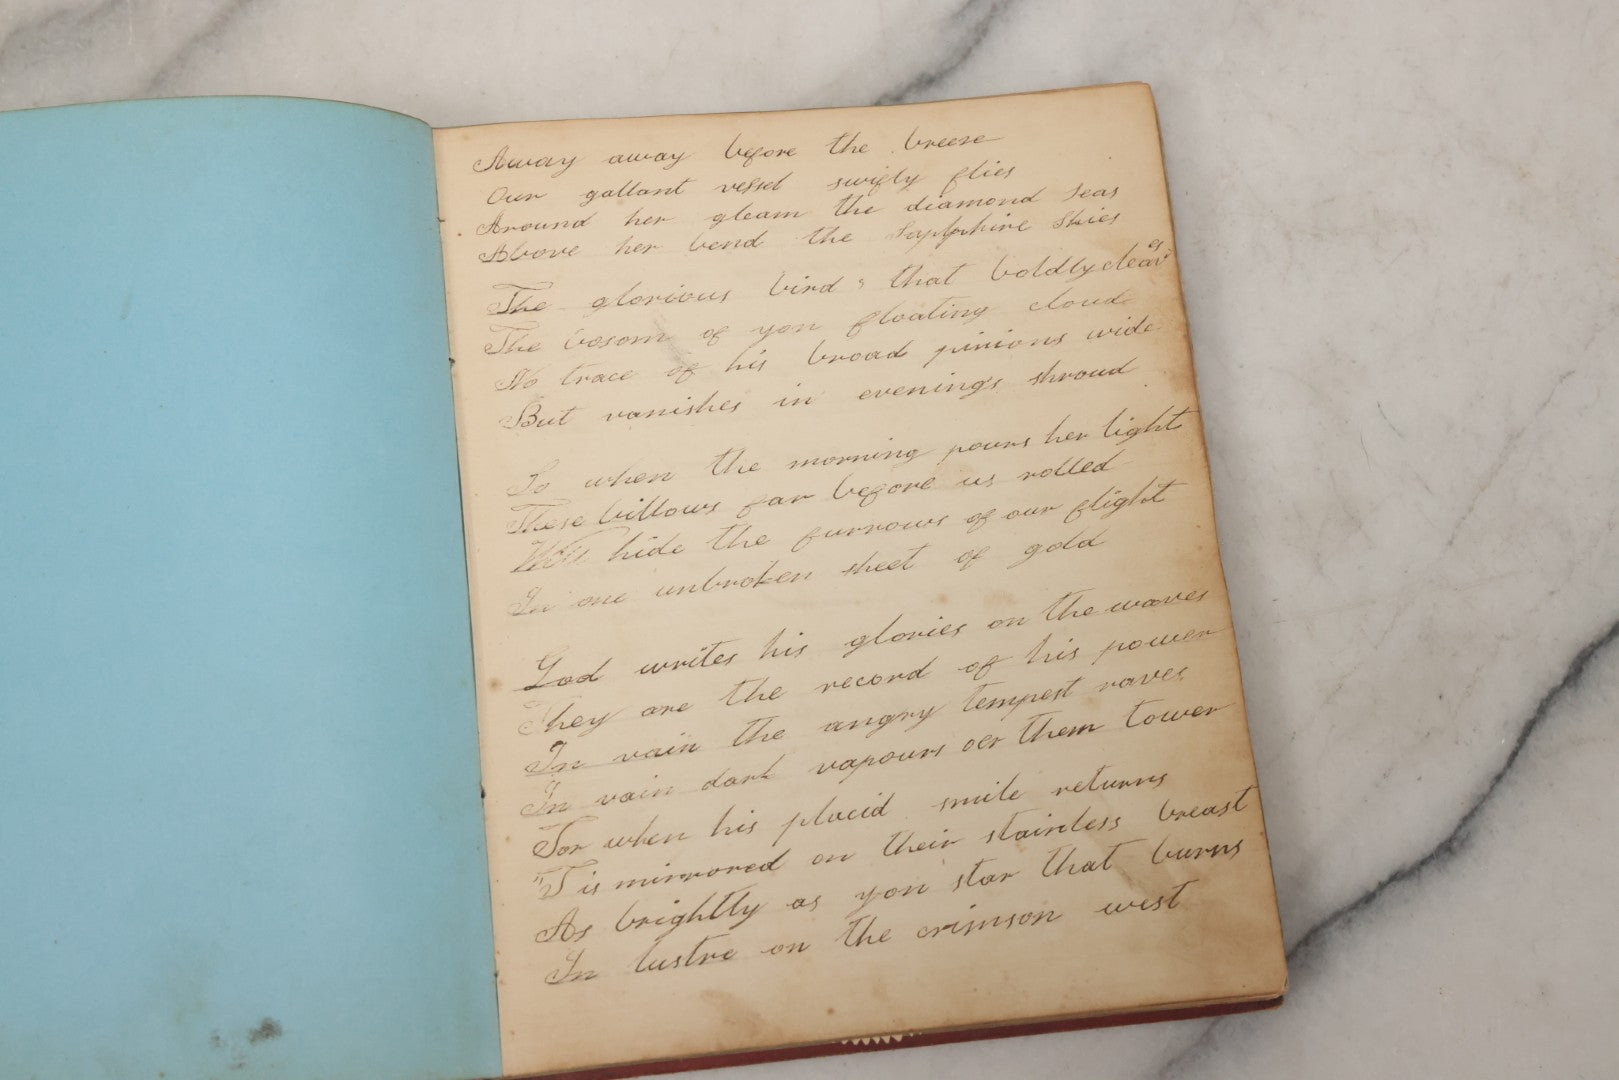 Away away before the breeze
Our gallant vessel swifty flies
Around her gleam the diamond seas
Above her bend the sapphire skies
The glorious bird, that boldly cleaves
The bosom of yon floating cloud
No trace of his broad pinions wide
But vanishes in evening's shroud
So when the morning pours her light
These billows far before us rolled
Will hide the furrows of our flight
In one unbroken sheet of gold
God writes his glories on the waves
They are the record of his power
In vain the angry tempest raves
In vain dark vapours oer them tower
For when his placid smile returns
'T is mirrored on their stainless breast
As brightly as yon star that burns
In lustre on the crimson west